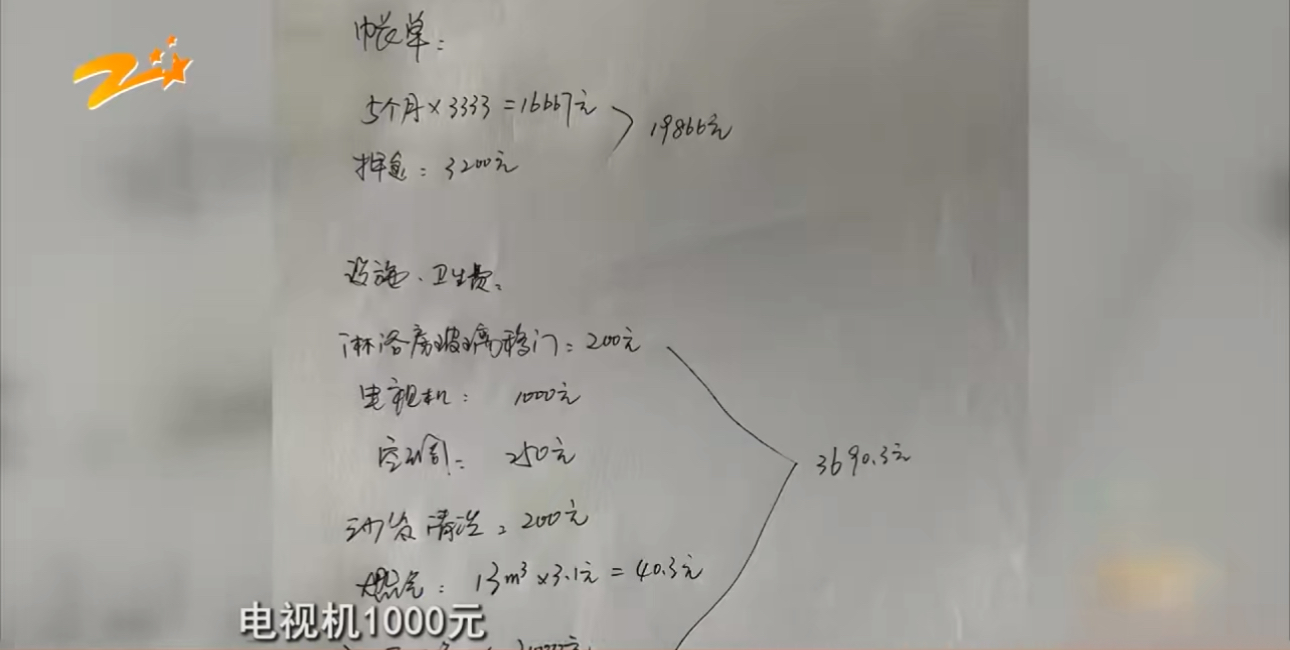 帐单:
5个月×3333=16667元
19866元
押金:3200元
设施、卫生费:
淋浴房玻璃移门:200元
电视机: 1000元
空调: 250元
3690.3元
沙发清洗:200元
燃气: 13m³×3.1元=40.3元
电视机1000元